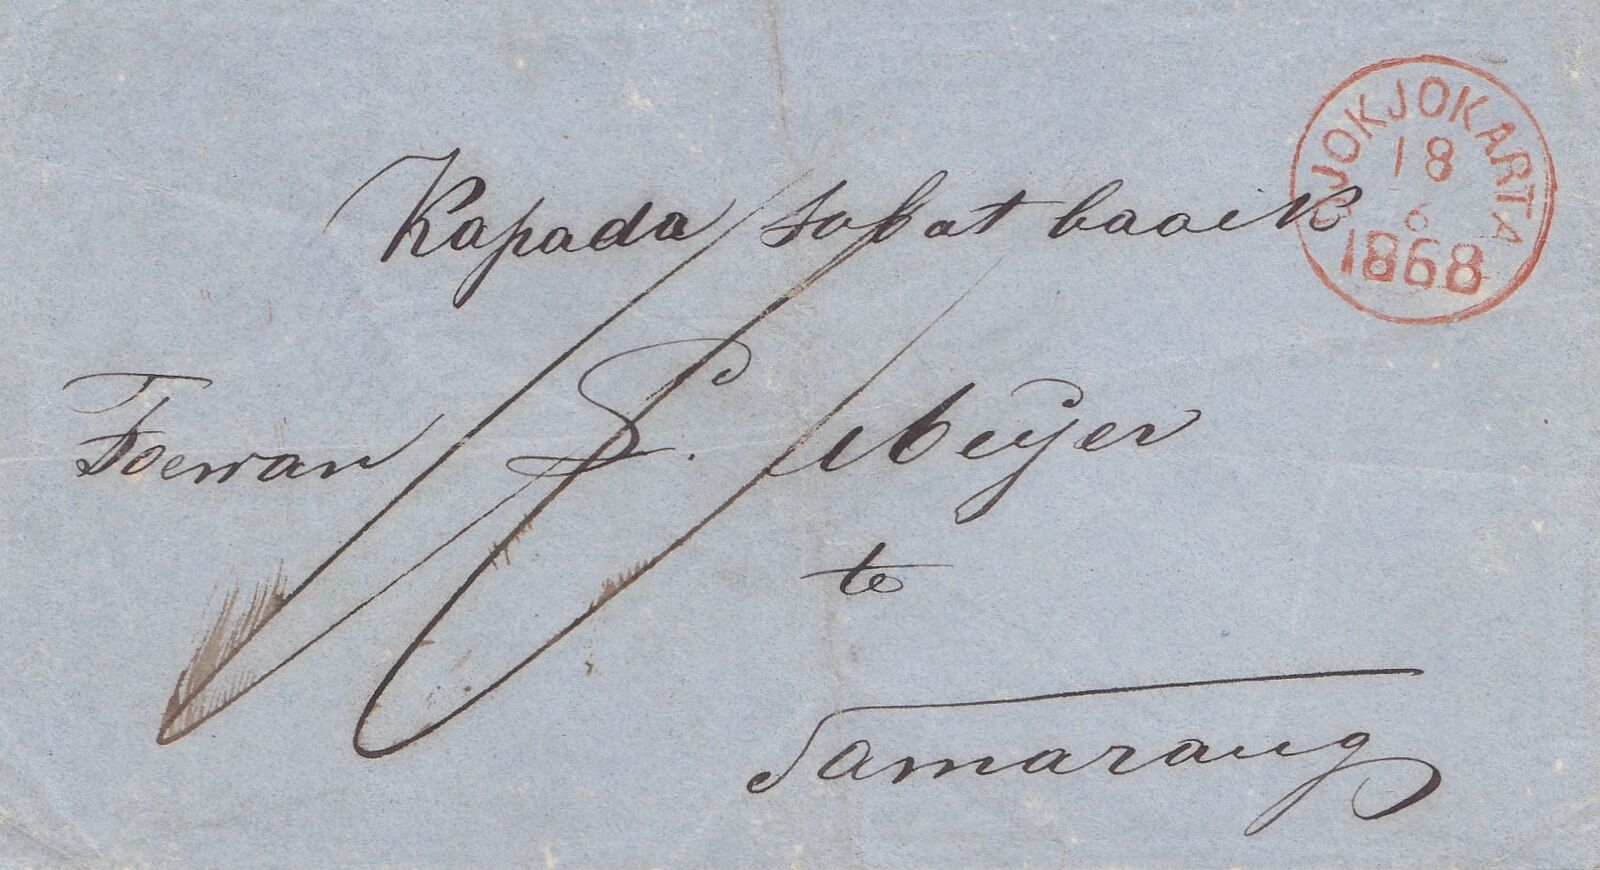 DJOKJOKARTA
18
6
1868
Kapada sobat baaik
Toewan P. Meijer
te
Samarang